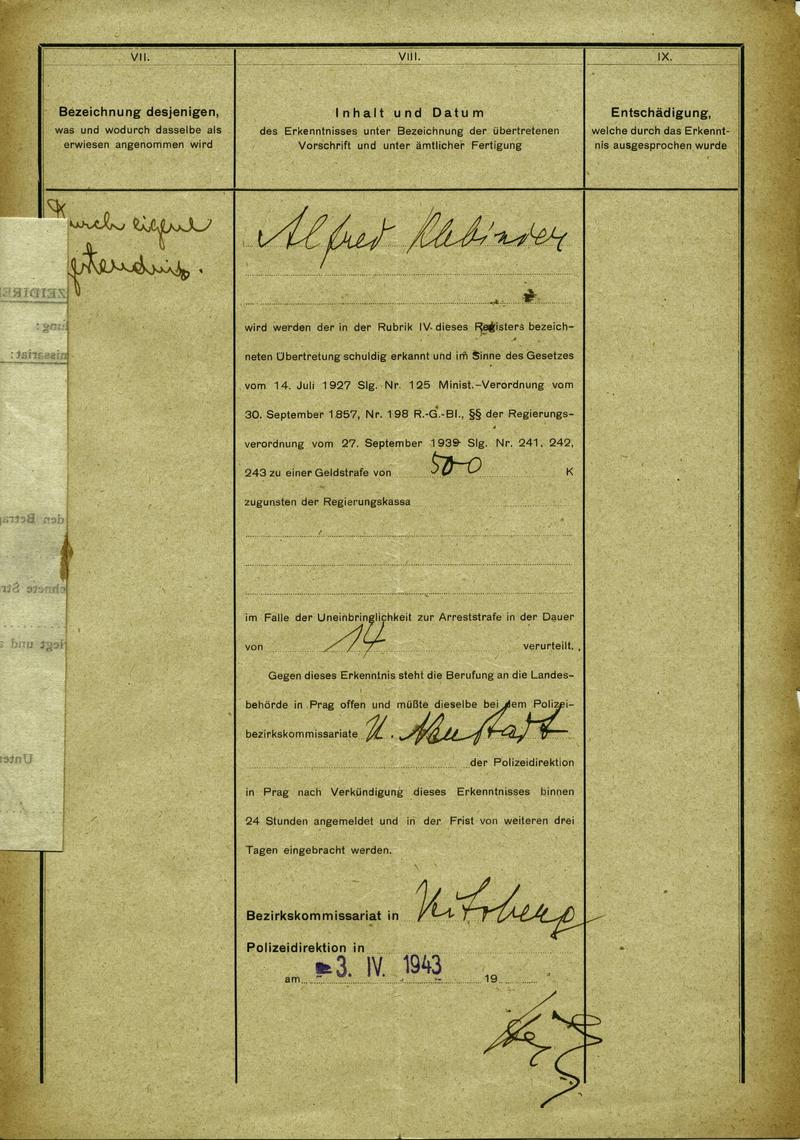 VII.
Bezeichnung desjenigen,
was und wodurch dasselbe als
erwiesen angenommen wird
Durch eigenes
Geständnis.
VIII.
Inhalt und Datum
des Erkenntnisses unter Bezeichnung der übertretenen
Vorschrift und unter ämtlicher Fertigung
Alfred Klebinder
wird werden der in der Rubrik IV. dieses Registers bezeich-
neten Übertretung schuldig erkannt und im Sinne des Gesetzes
vom 14. Juli 1927 Slg. Nr. 125 Minist.-Verordnung vom
30. September 1857, Nr. 198 R.-G.-Bl., §§ der Regierungs-
verordnung vom 27. September 1939 Slg. Nr. 241, 242,
243 zu einer Geldstrafe von 500 K
zugunsten der Regierungskassa
im Falle der Uneinbringlichkeit zur Arreststrafe in der Dauer
von 14 verurteilt.
Gegen dieses Erkenntnis steht die Berufung an die Landes-
behörde in Prag offen und müßte dieselbe bei dem Polizei-
bezirkskommissariate U. Neustadt
der Polizeidirektion
in Prag nach Verkündigung dieses Erkenntnisses binnen
24 Stunden angemeldet und in der Frist von weiteren drei
Tagen eingebracht werden.
Bezirkskommissariat in
Polizeidirektion in
am 3. IV. 1943 19
IX.
Entschädigung,
welche durch das Erkennt-
nis ausgesprochen wurde